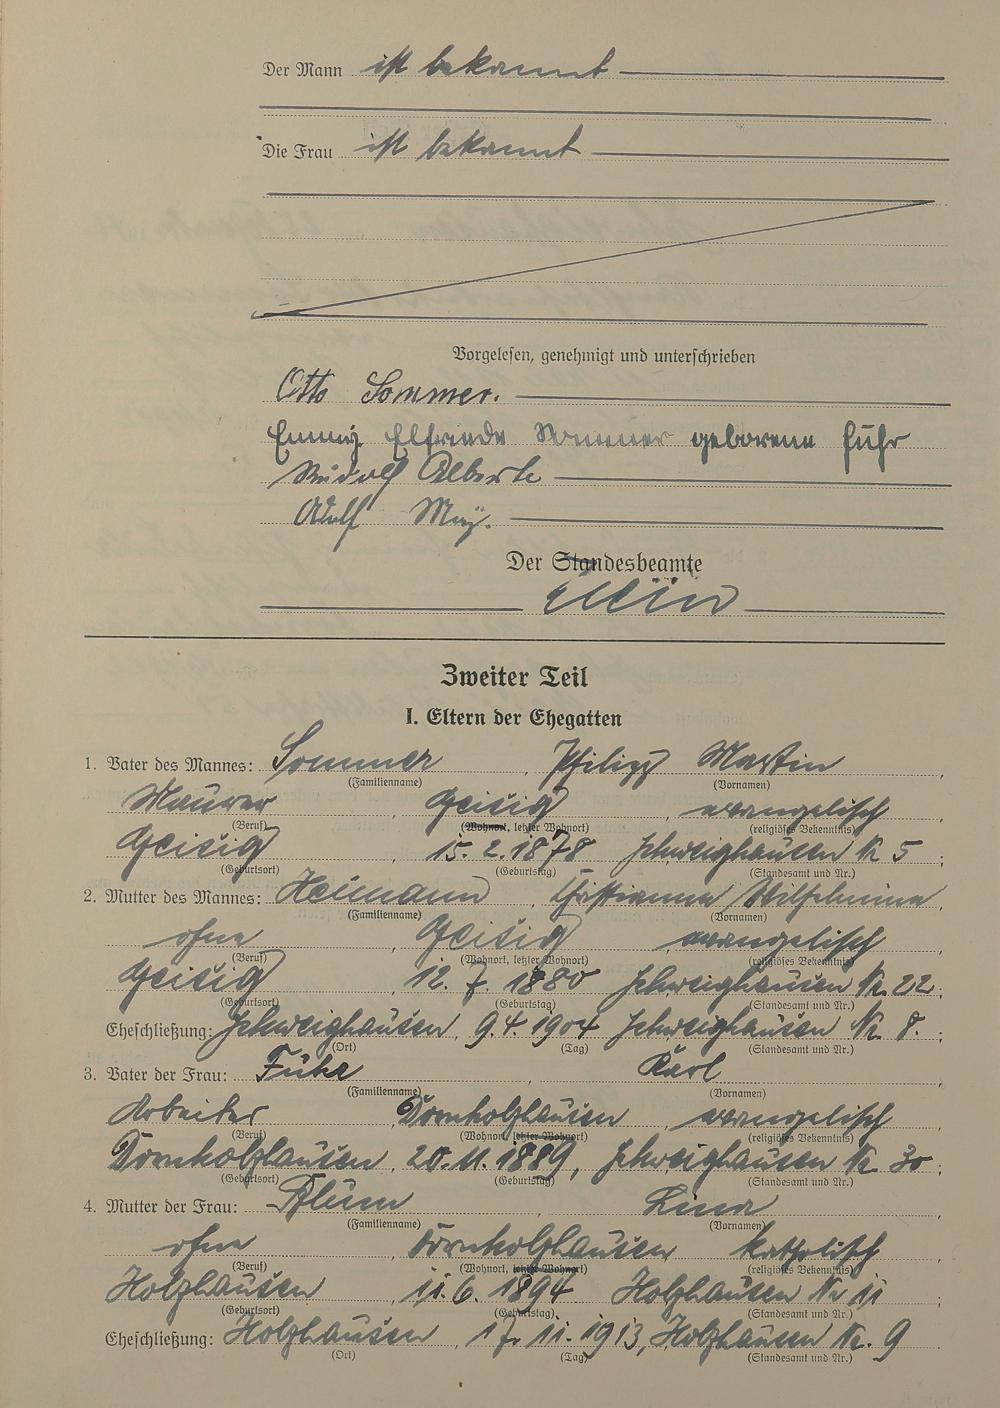 Der Mann ist bekannt
Die Frau ist bekannt
Vorgelesen, genehmigt und unterschrieben
Otto Sommer.
Emmy Elfriede Sommer geborene Führ
Rudolf Alberti
Adolf May.
Der Standesbeamte
Zweiter Teil
I. Eltern der Ehegatten
1. Vater des Mannes: Sommer, Philipp Martin,
(Familienname) (Vornamen)
Maurer, Geisig, evangelisch
(Beruf) (Wohnort, letzter Wohnort) (religiöses Bekenntnis)
Geisig, 15.2.1878 Schweighausen N 5;
(Geburtsort) (Geburtstag) (Standesamt und Nr.)
2. Mutter des Mannes: Heimann, Christianne Wilhelmine,
(Familienname) (Vornamen)
ohne, Geisig, evangelisch
(Beruf) (Wohnort, letzter Wohnort) (religiöses Bekenntnis)
Geisig, 12.7.1880 Schweighausen Nr. 22;
(Geburtsort) (Geburtstag) (Standesamt und Nr.)
Eheschließung: Schweighausen, 9.4.1904 Schweighausen Nr. 8.;
(Ort) (Tag) (Standesamt und Nr.)
3. Vater der Frau: Führ, Karl,
(Familienname) (Vornamen)
Arbeiter, Dornholzhausen, evangelisch
(Beruf) (Wohnort, letzter Wohnort) (religiöses Bekenntnis)
Dornholzhausen, 20.11.1889, Schweighausen Nr. 30;
(Geburtsort) (Geburtstag) (Standesamt und Nr.)
4. Mutter der Frau: Blum, Lina,
(Familienname) (Vornamen)
ohne, Dornholzhausen, katholisch
(Beruf) (Wohnort, letzter Wohnort) (religiöses Bekenntnis)
Holzhausen, 11.6.1894 Holzhausen Nr 11;
(Geburtsort) (Geburtstag) (Standesamt und Nr.)
Eheschließung: Holzhausen, 17.11.1913, Holzhausen Nr. 9
(Ort) (Tag) (Standesamt und Nr.)